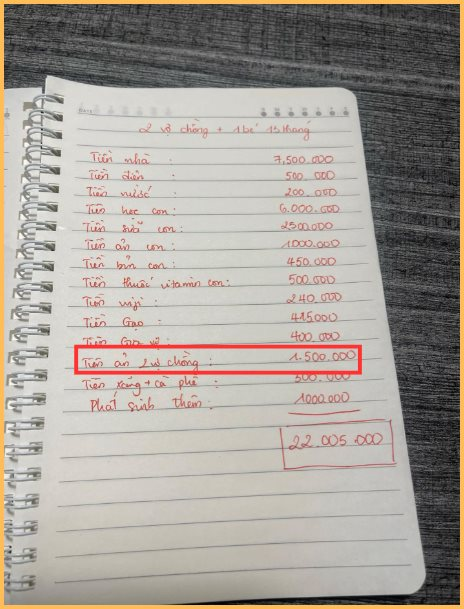 DATE
2 vợ chồng + 1 bé 15 tháng
Tiền nhà : 7,500.000
Tiền điện : 500.000
Tiền nước : 200.000
Tiền học con : 6.000.000
Tiền sữa con : 2300.000
Tiền ăn con : 1000.000
Tiền bỉm con : 450.000
Tiền thuốc vitamin con : 500.000
Tiền wifi : 240.000
Tiền Gạo : 415.000
Tiền Gia vị : 400.000
Tiền ăn 2 vợ chồng : 1.500.000
Tiền xăng + cà phê : 500.000
Phát sinh thêm : 1000.000
22.005.000